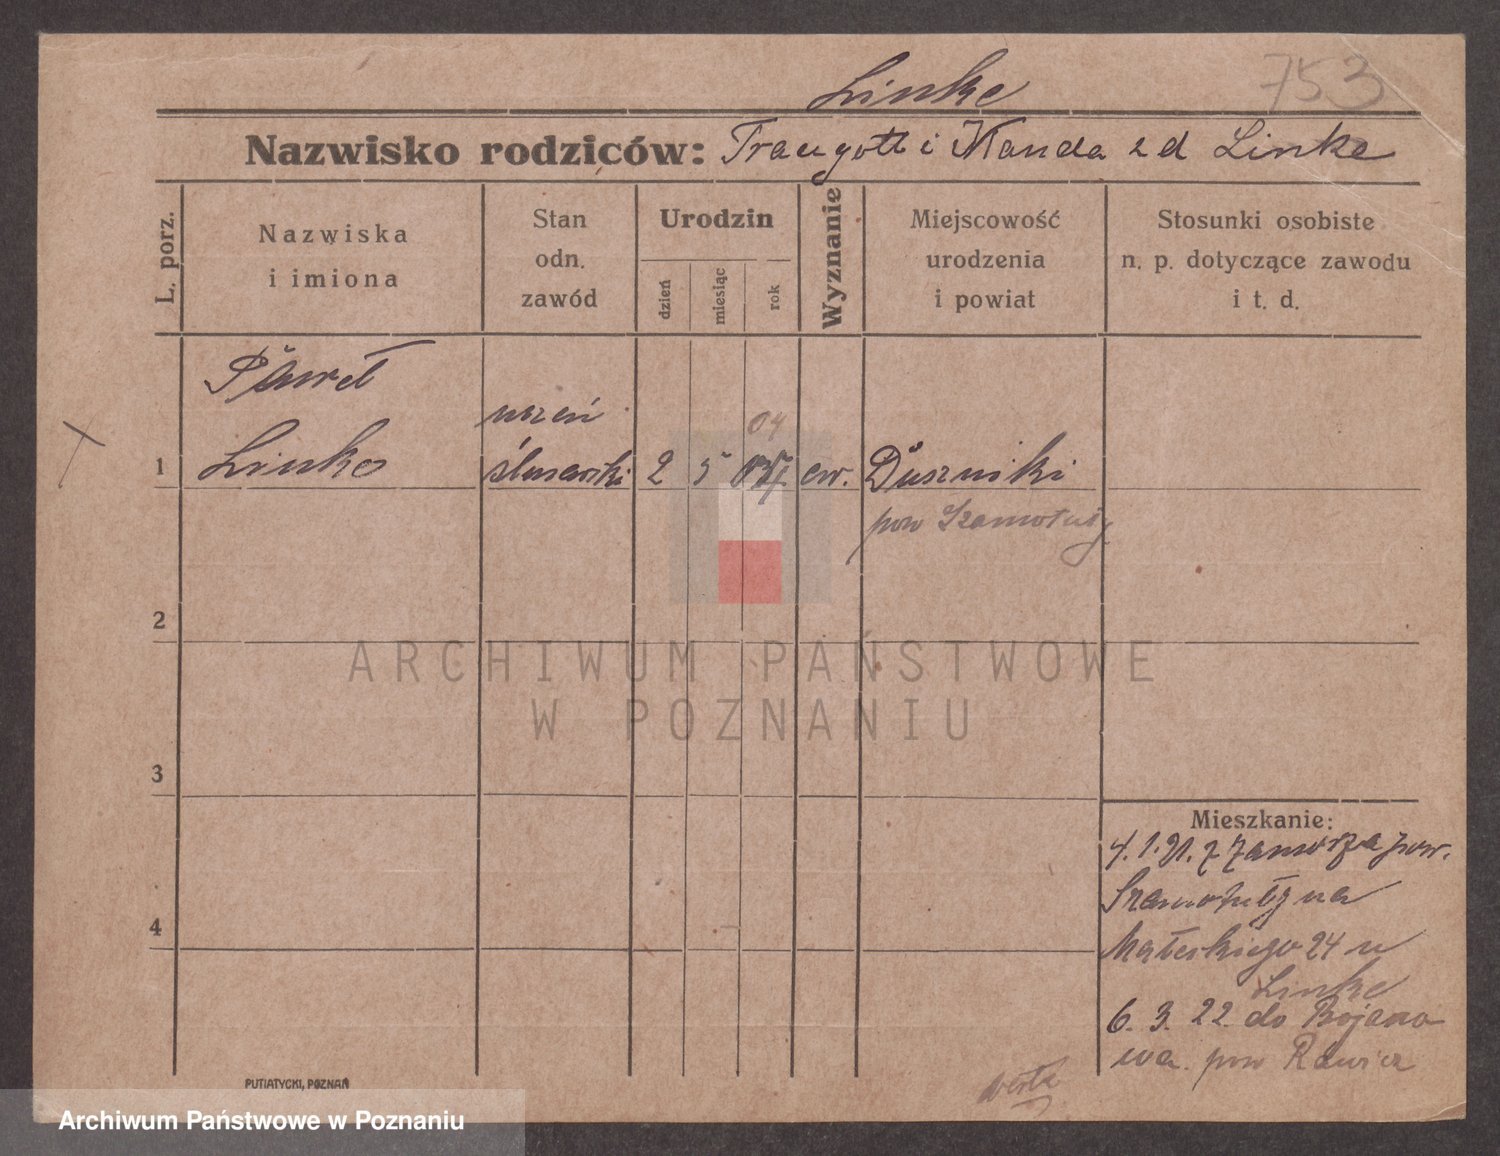 Linke
753
Nazwisko rodziców: Traugott i Wanda zd Linke
L. porz.
Nazwiska
i imiona
Stan
odn.
zawód
Urodzin
dzień
miesiąc
rok
Wyznanie
Miejscowość
urodzenia
i powiat
Stosunki osobiste
n. p. dotyczące zawodu
i t. d.
Paweł
uczeń
04
1 Linke ślusarski 2 5 ew. Duszniki
pow Szamotuły
2
ARCHIWUM PAŃSTWOWE
W POZNANIU
3
Mieszkanie:
4.1.21. z Zamorza pow.
Szamotuły na
Małeckiego 24 u
Linke
4
6. 3. 22 do Bojano
wa. pow Rawicz
PUTIATYCKI, POZNAŃ
Archiwum Państwowe w Poznaniu